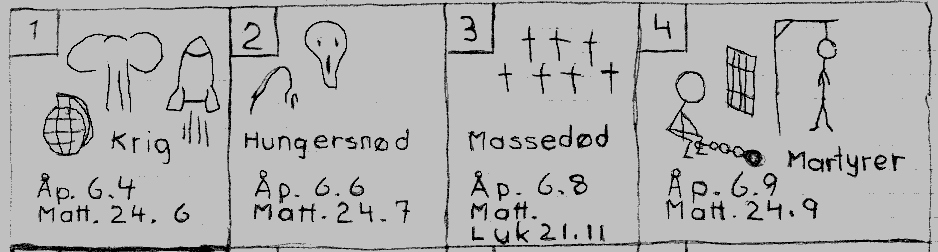 1
Krig
Åp. 6.4
Matt. 24. 6
2
Hungersnød
Åp. 6.6
Matt. 24.7
3
Massedød
Åp. 6.8
Matt.
Luk 21.11
4
Martyrer
Åp. 6.9
Matt. 24.9